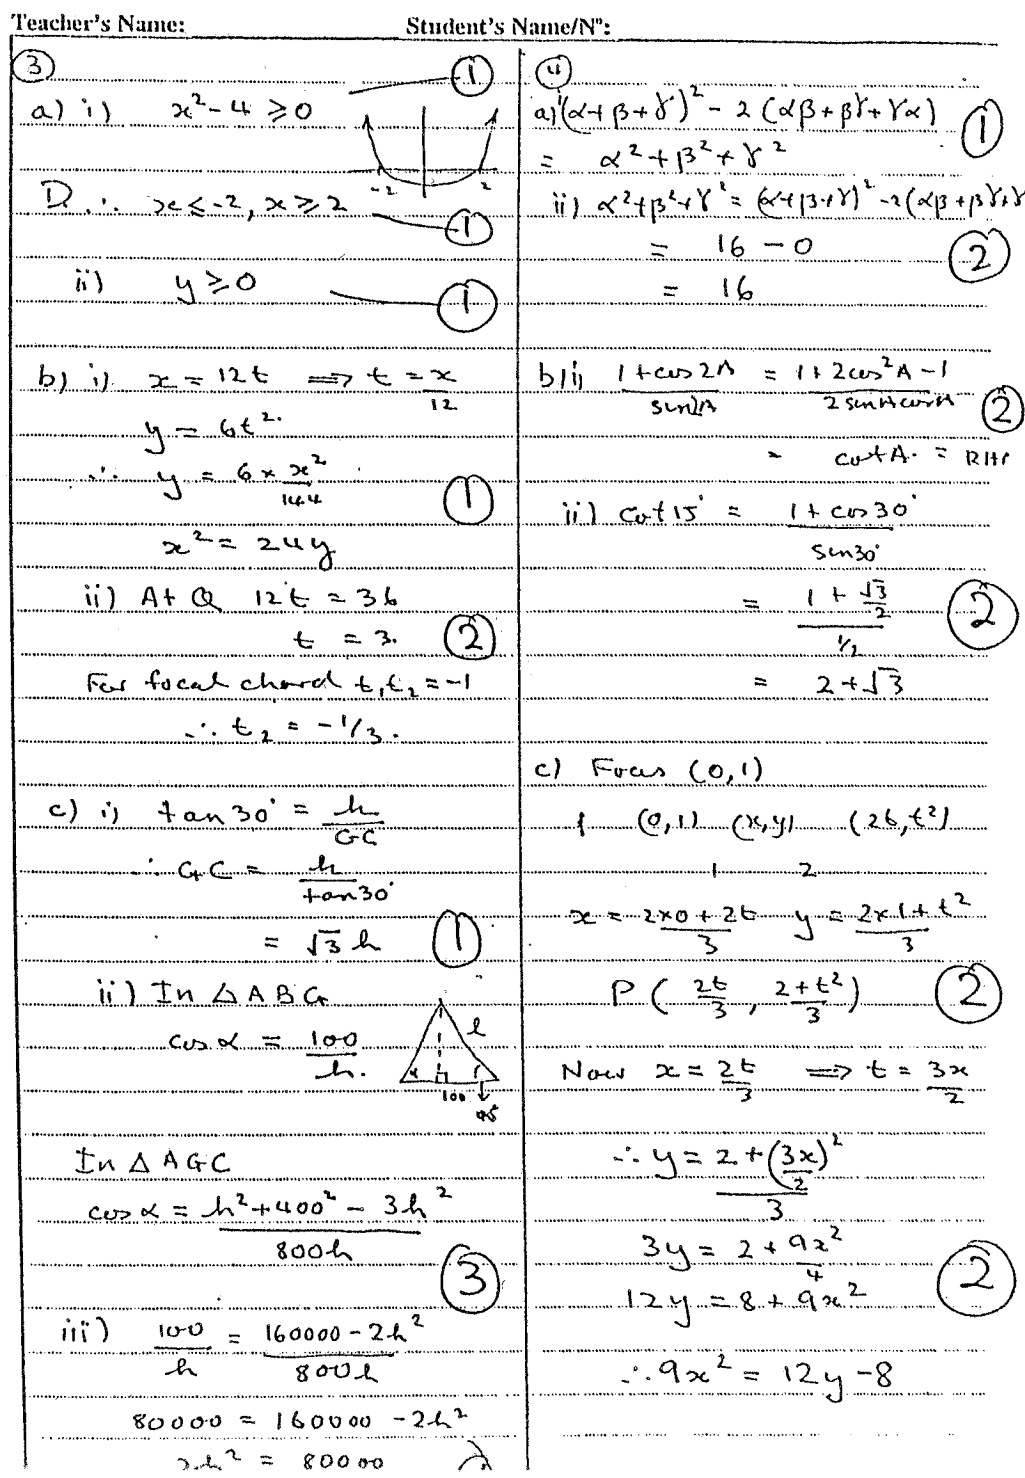 Teacher's Name: Student's Name/Nº:
③
a) i) x² - 4 ⩾ 0 ①
-2 2
D ∴ x ⩽ -2, x ⩾ 2 ①
ii) y ⩾ 0 ①
b) i) x = 12t ⟹ t = x/12
y = 6t².
∴ y = 6 × x²/144 ①
x² = 24y
ii) At Q 12t = 36
t = 3. ②
For focal chord t₁t₂ = -1
∴ t₂ = -1/3.
c) i) tan 30° = h/GC
∴ GC = h/tan 30°
= √3 h ①
ii) In △ABG
cos α = 100/h.
α l 100
In △AGC
cos α = (h² + 400² - 3h²)/800h
③
iii) 100/h = (160000 - 2h²)/800h
80000 = 160000 - 2h²
2h² = 80000
④
a) i) (α + β + γ)² - 2(αβ + βγ + γα) ①
= α² + β² + γ²
ii) α² + β² + γ² = (α + β + γ)² - 2(αβ + βγ + γ
= 16 - 0 ②
= 16
b) i) (1 + cos 2A)/sin 2A = (1 + 2cos²A - 1)/(2 sin A cos A) ②
= cot A. = RHS
ii) cot 15° = (1 + cos 30°)/sin 30°
= (1 + √3/2)/(1/2) ②
= 2 + √3
c) Focus (0,1)
(0,1) (x,y) (2t, t²)
1 2
x = (2×0 + 2t)/3 y = (2×1 + t²)/3
P (2t/3, (2 + t²)/3) ②
Now x = 2t/3 ⟹ t = 3x/2
∴ y = (2 + (3x/2)²)/3
3y = 2 + 9x²/4 ②
12y = 8 + 9x²
∴ 9x² = 12y - 8